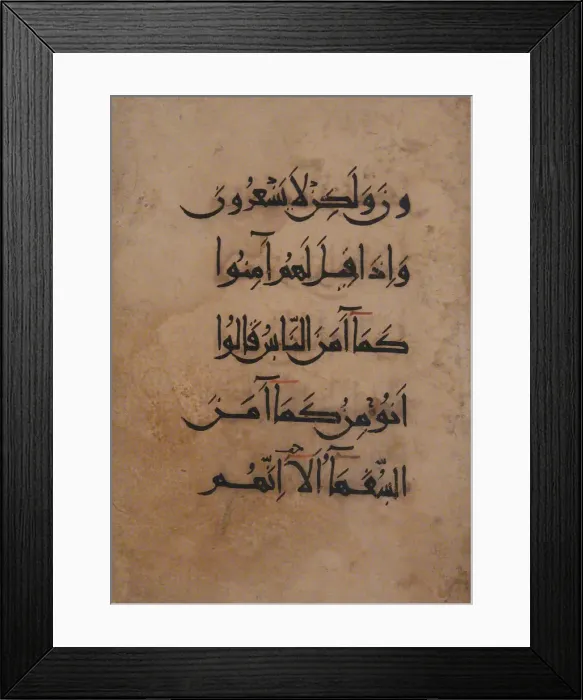 ون وَلَكِنْ لَا يَشْعُرُونَ
وَاِذَا قِيلَ لَهُمْ آمِنُوا
كَمَآ آمَنَ النَّاسُ قَالُوا
اَنُؤْمِنُ كَمَآ آمَنَ
السُّفَهَآءُ اَلَآ اِنَّهُمْ